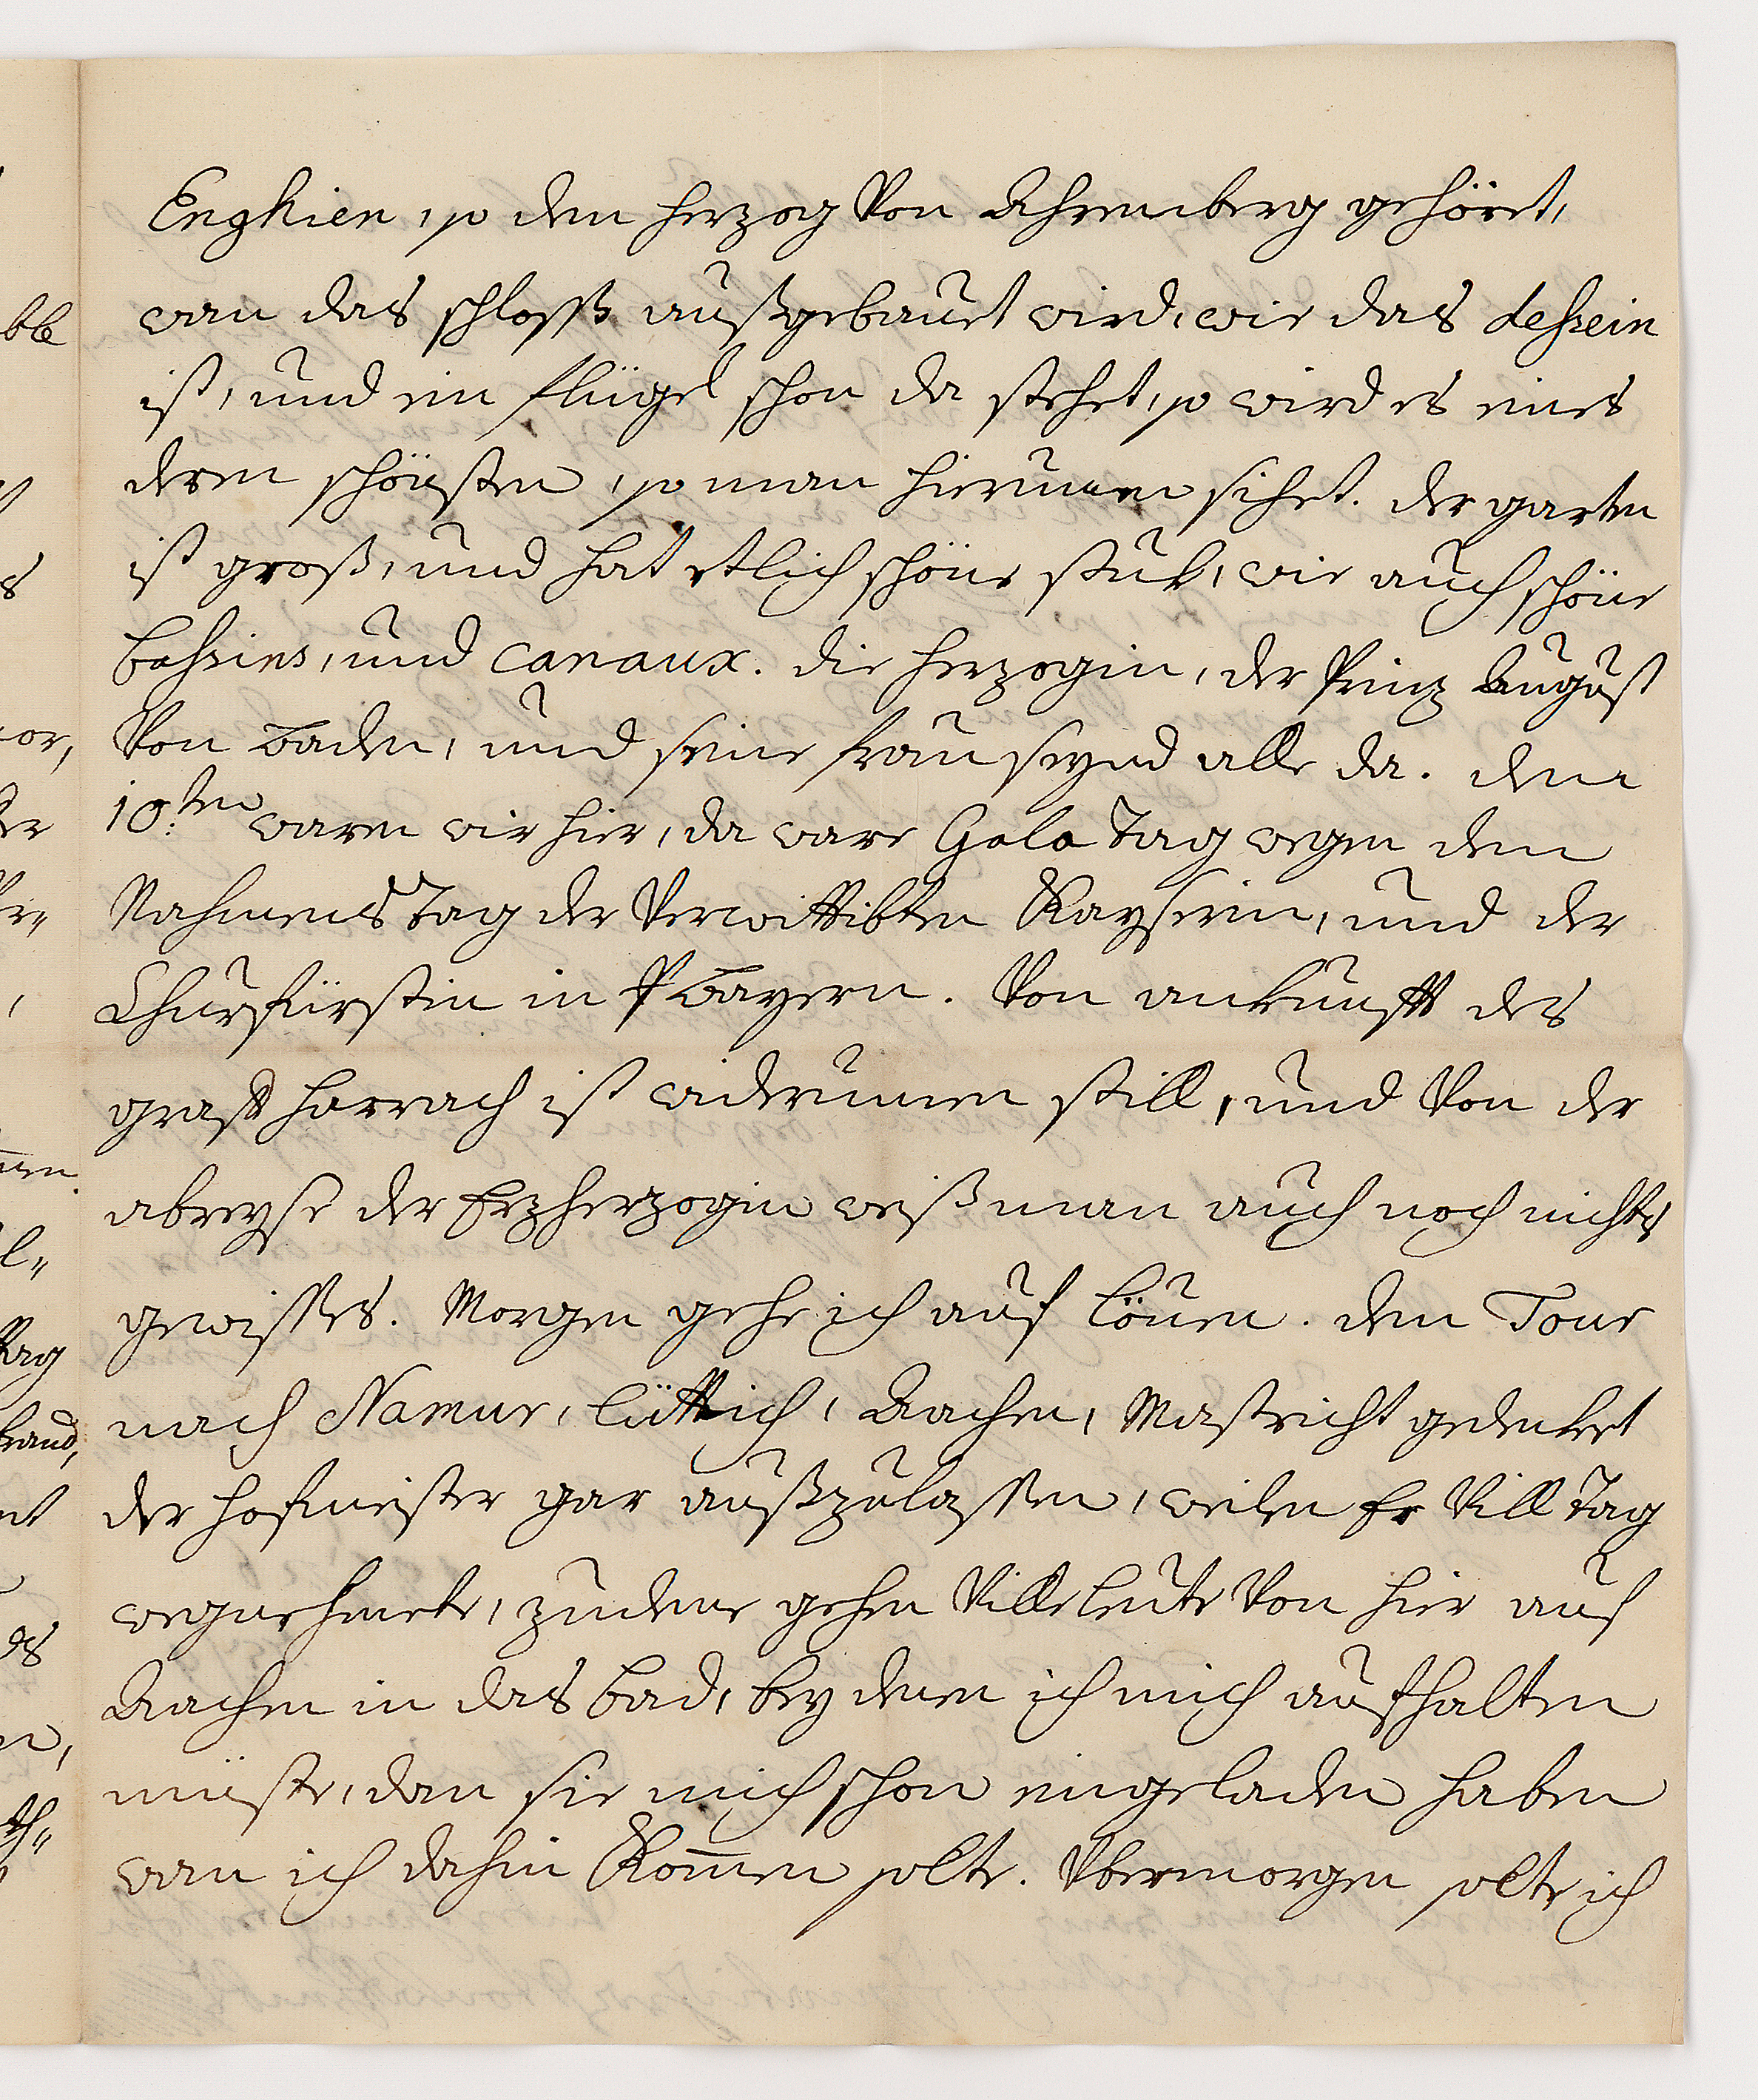 Enghien, so dem herzog von Ahremberg gehöret,
wan das schloß außgebauet wird, wie das dessein
ist, und ein flügel schon da stehet, so wird es eines
deren schönsten, so man hierumen sihet. der garten
ist groß, und hat etlich schöne stuk, wie auch schöne
bassins, und canaux. die herzogin, der Prinz August
von Baden, und seine frau seynd alle da. den
10:ten waren wir hier, da ware Gala Tag wegen dem
Nahmens Tag der Verwittibten Kayserin, und der
Churfürstin in Bayern. Von ankunfft des
graff Harrach ist widerumen still, und von der
abreyse der Erzherzogin weiß man auch noch nichts
gewisses. Morgen gehe ich auf Löuen. den Tour
nach Namur, Lüttich, Aachen, Mastricht gedenket
der hofmeister gar außzulassen, weilen Er vill Tag
wegnehmete, zudeme gehen ville leute von hier auf
Aachen in das bad, bey denen ich mich aufhalten
müste, dan sie mich schon eingeladen haben
wan ich dahin Kom̄en solte. Ybermorgen solte ich